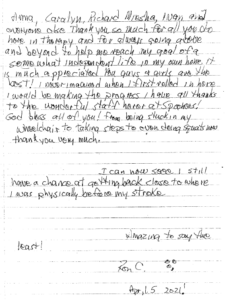 Anna, Caralyn, Richard Minisha, Ivan and
everyone else Thank you so much for all you do
here in therapy and for always going above
and beyond to help me reach my goal of a
somewhat independent life in my own home it
is much appreciated You guys & girls are the
best! I never imagined when I first rolled in here
I would be making the progress I have all thanks
to the wonderful staff here at
God bless all of you! From being stuck in my
wheelchair to taking steps to even doing
thank you very much.
I can now see I still
have a chance at getting back close to where
I was physically before my stroke
Amazing to say the
least!
Ron C.
April 5 2021!